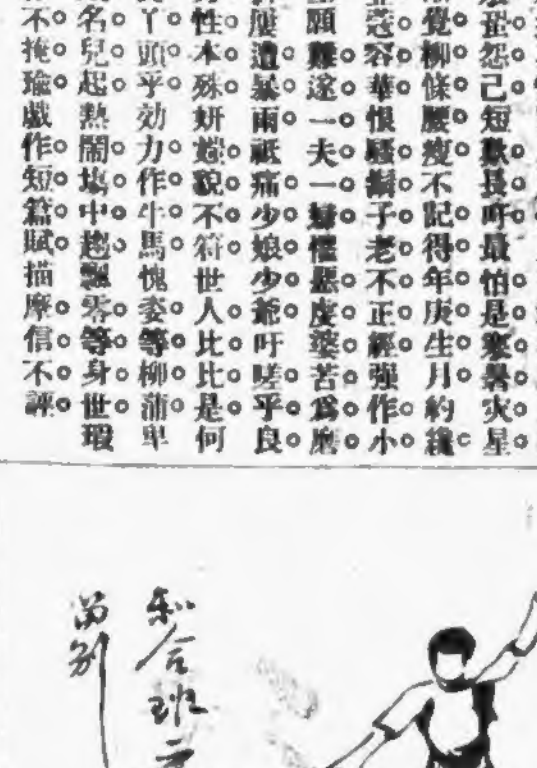 怨己短歎長吁最怕是寒暑火星
覺柳條腰瘦不記得年庚生月約纔
容華恨騷鬍子老不正經强作小
願難遂一夫一妻懼惡虔婆苦爲磨
屢遭暴雨祇痛少娘少爺吁嗟乎良
性本殊妍媸貌不符世人比比是何
丫頭乎効力作牛馬愧妾等柳蒲卑
名兒起熱鬧塲中趨飄零等身世瑕
不掩瑜戲作短篇賦描摩信不誣
和合班
留別